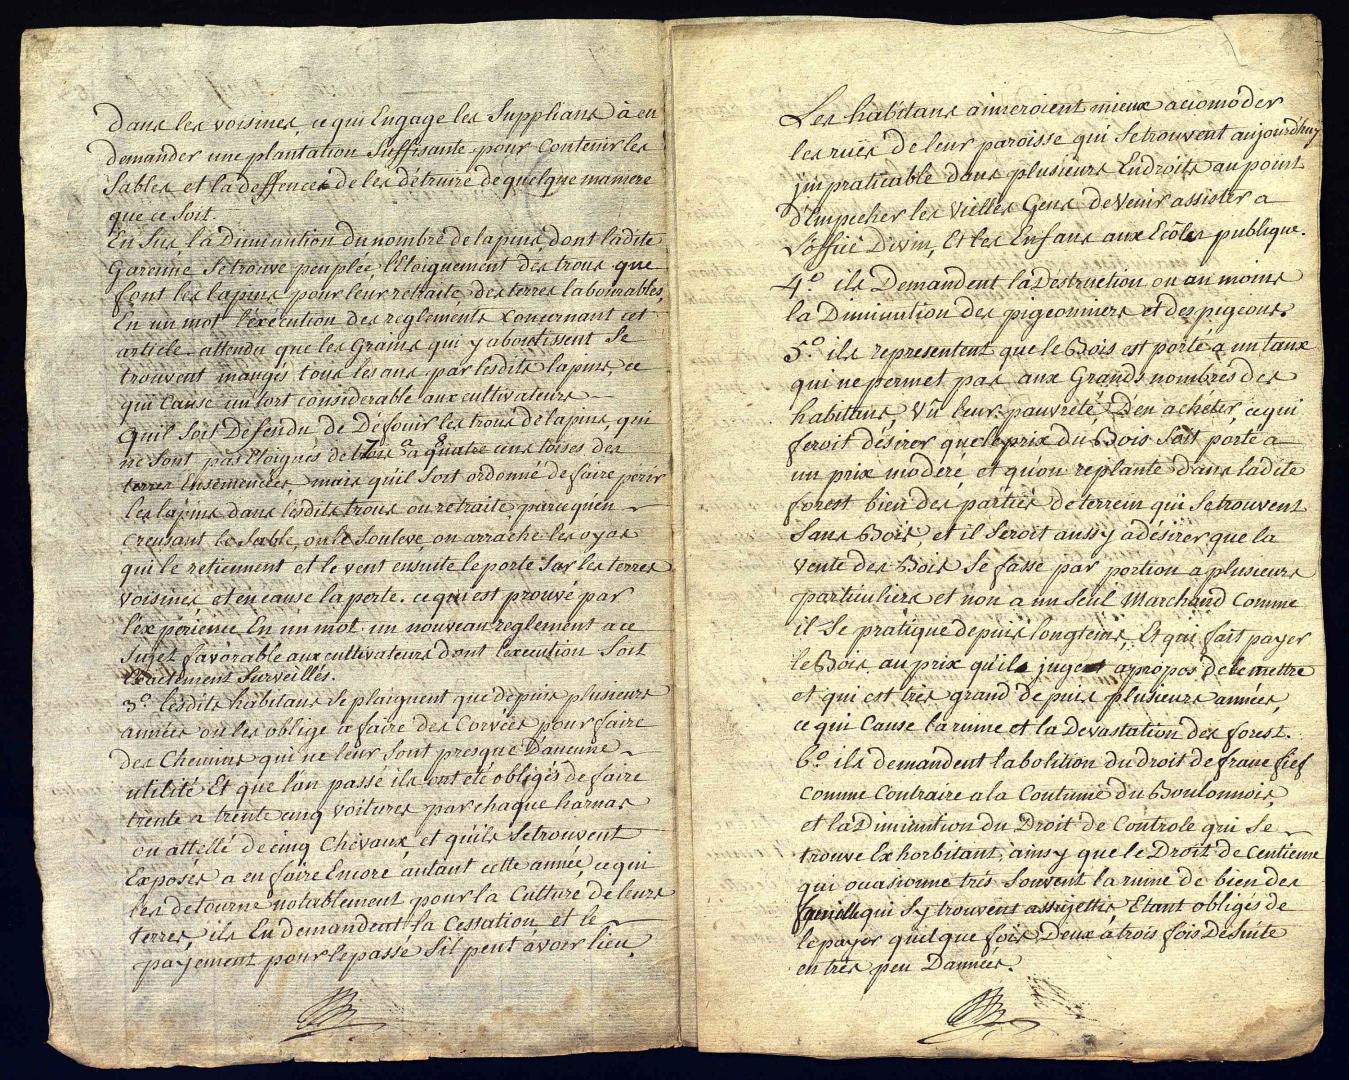 dans les voisines, ce qui Engage les Supplians à en
demander une plantation Suffisante pour Contenir les
Sables, et la deffence de les détruire de quelque maniere
que ce soit.
En Sus la Diminution du nombre de lapins, dont ladite
Garenne Se trouve peuplée, l'Eloignement des trous que
font les lapins pour leur retraite, des terres labourables,
En un mot l'éxécution des reglements concernant cet
article. attendu que les Grains qui y aboutissent Se
trouvent mangés tous les ans par lesdits lapins, ce
qui Cause un tort considerable aux cultivateurs
Qu'il Soit Defendu de Défouir les trous de lapins, qui
ne Sont pas Eloignés de 7 à 8 cens toises des
terres Ensemencées, mais qu'il Soit ordonné de faire perir
les lapins dans lesdits trous ou retraite, parce qu'en
Creusant le Sable, on le Souleve, on arrache les oyas
qui le retiennent et le vent ensuite le porte Sur les terres
voisines, et en cause la perte. ce qui est prouvé par
l'expérience En un mot un nouveau reglement a ce
Sujet favorable aux cultivateurs dont l'execution Soit
Exactement Surveillés.
3.º lesdits habitans Se plaignent que depuis plusieurs
années on les oblige a faire des Corvées pour faire
des Chemins qui ne leur Sont presque D'aucune
utilité Et que l'an passé ils ont été obligés de faire
trente a trente cinq voitures par chaque harnas
ou attellé de cinq Chevaux, et qu'ils Se trouvent
Exposés a en faire Encore autant cette année, ce qui
les detourne notablement pour la Culture de leurs
terres, ils En demandent la Cessation, et le
payement pour le passé S'il peut avoir lieu.
Les habitans aimeroient mieux acomoder
les rues de leur paroisse qui Se trouvent aujourd'huy
impraticable dans plusieurs Endroits au point
d'Empecher les vielles Gens de Venir assister a
l'office Divin, Et les Enfans aux Ecoles publique.
4.º ils Demandent la Déstruction ou au moins
la Diminution des pigeonniers et des pigeons.
5.º ils representent que le Bois est porté a un taux
qui ne permet pas aux Grands nombres des
habitans Vû leur pauvreté, D'en achéter, ce qui
feroit désirer que le prix du Bois Soit porté a
un prix moderé et qu'on replante dans ladite
forest bien des parties de terrein qui Se trouvent
Sans Bois, et il Seroit aussy a désirer que la
vente des Bois Se fasse par portion a plusieurs
particuliers et non a un Seul Marchand Comme
il Se pratique depuis longtems, Et qui fait payer
le Bois au prix qu'ils jugent apropos de le mettre
et qui est très grand depuis plusieurs années,
ce qui Cause la ruine et la Devastation des forest.
6.º ils demandent l'abolition du droit de franc fief
comme Contraire a la Coutume du Boulonnois,
et la Diminution du Droit de Controle qui Se
trouve Exhorbitant, ainsy que le Droit de Centieme
qui ocasionne très Souvent la ruine de bien des
famille qui S'y trouvent assujettis, Etant obligés de
le payer quelque fois Deux à trois fois De Suite
en très peu D'années.